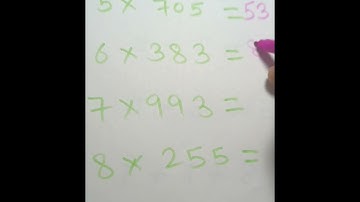 5 × 705 = 53
6 × 383 =
7 × 993 =
8 × 255 =